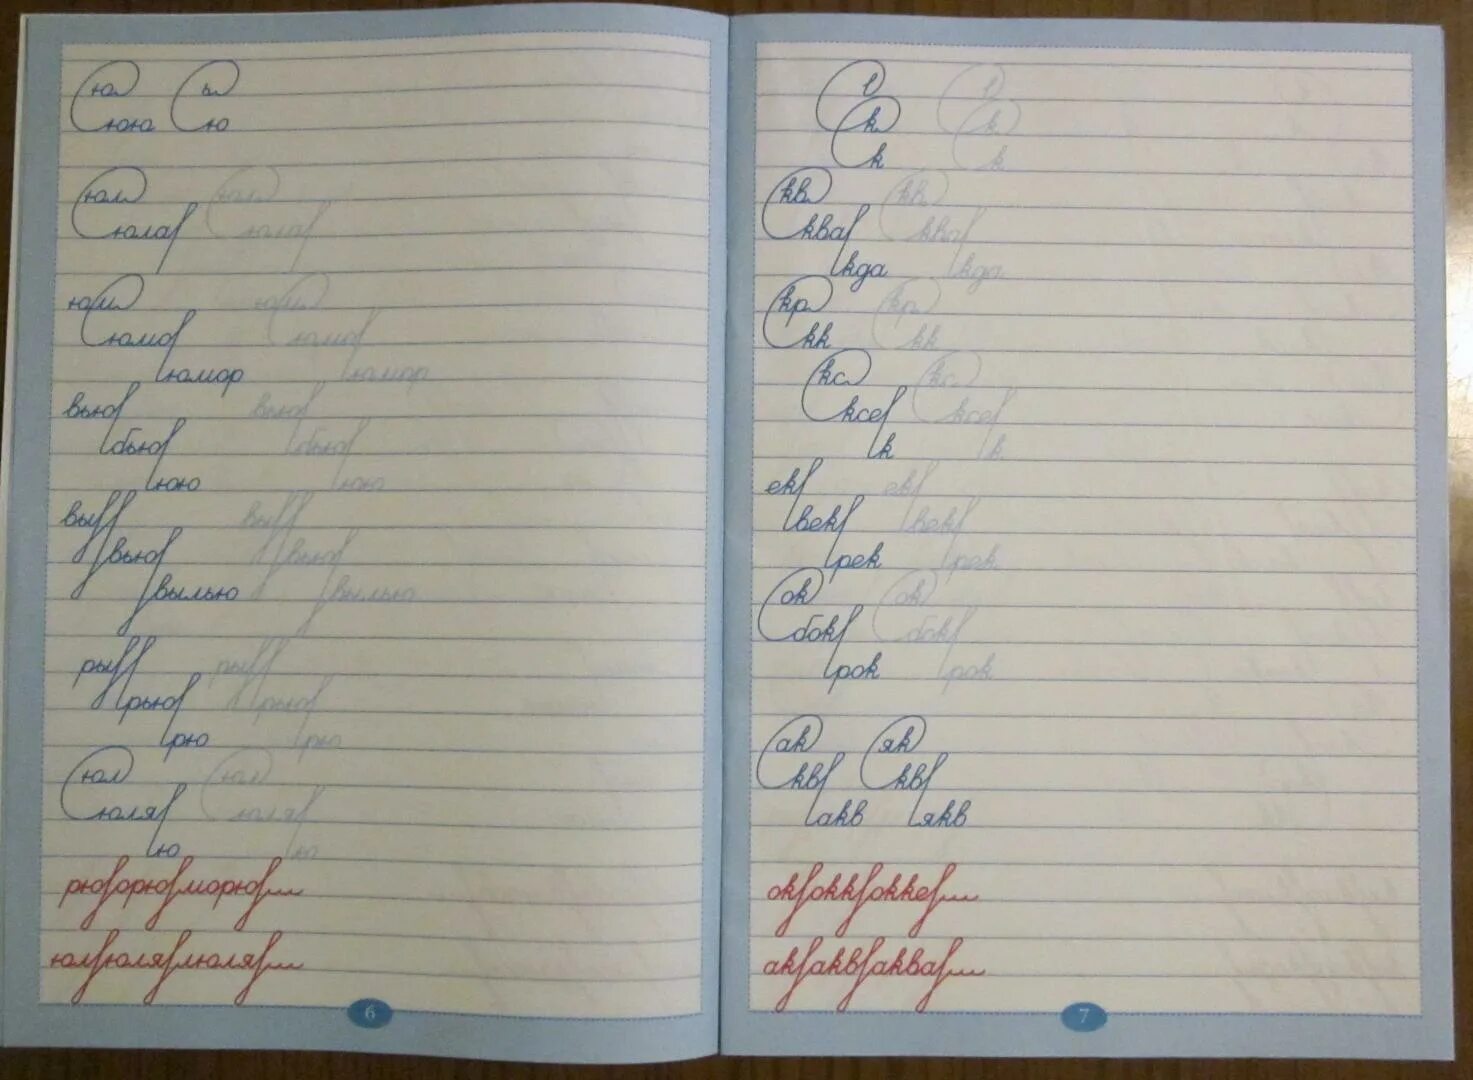 ю ь
юю ю
юл юл
юла юла
юм юм
юмо юмо
юмор юмор
вью вью
бью бью
юю юю
вы вы
вью вью
вылью вылью
ры ры
рью рью
рю рю
юл юл
юля юля
ю ю
рюорюморю
юлюлялюля
6
к к
к к
кв кв
ква ква
кда кда
кр кр
кк кк
кс кс
ксе ксе
к к
ек ек
век век
рек рек
ок ок
бок бок
рок рок
ак як
кв кв
акв якв
ококкокке
акакваква
7